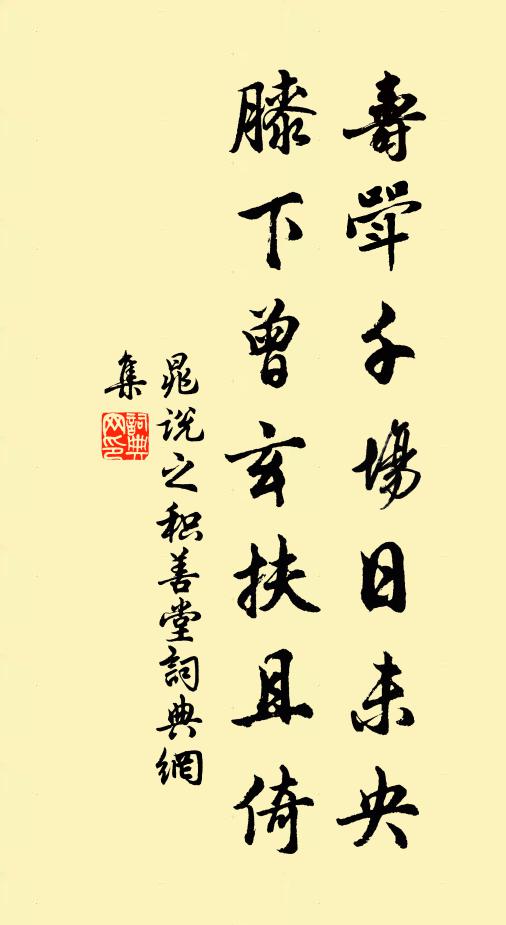 壽斝千場日未央
膝下曾玄扶且倚
晁說之积善堂詞典網
集
詞典網印